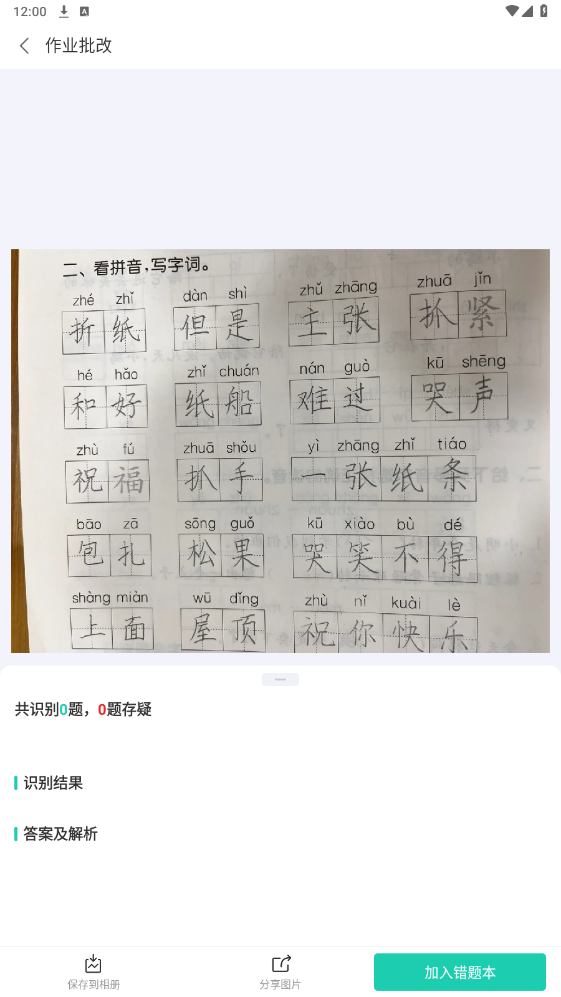 12:00
作业批改
二、看拼音,写字词。
zhé zhǐ dàn shì zhǔ zhāng zhuā jǐn
折纸 但是 主张 抓紧
hé hǎo zhǐ chuán nán guò kū shēng
和好 纸船 难过 哭声
zhù fú zhuā shǒu yì zhāng zhǐ tiáo
祝福 抓手 一张纸条
bāo zā sōng guǒ kū xiào bù dé
包扎 松果 哭笑不得
shàng miàn wū dǐng zhù nǐ kuài lè
上面 屋顶 祝你快乐
共识别0题，0题存疑
识别结果
答案及解析
保存到相册 分享图片 加入错题本